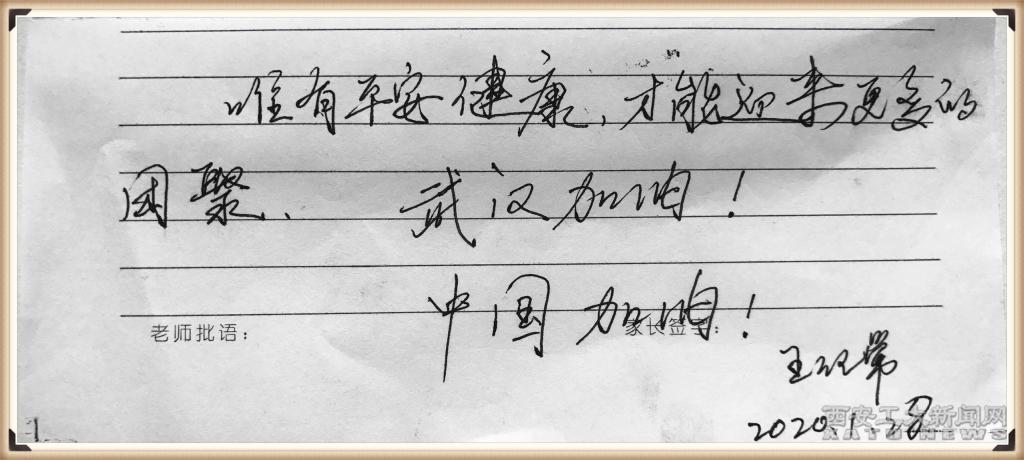 唯有平安健康,才能迎来更多的
团聚、 武汉加油!
中国加油!
老师批语: 家长签字:
2020.1.28
西安工大新闻网
XATU NEWS